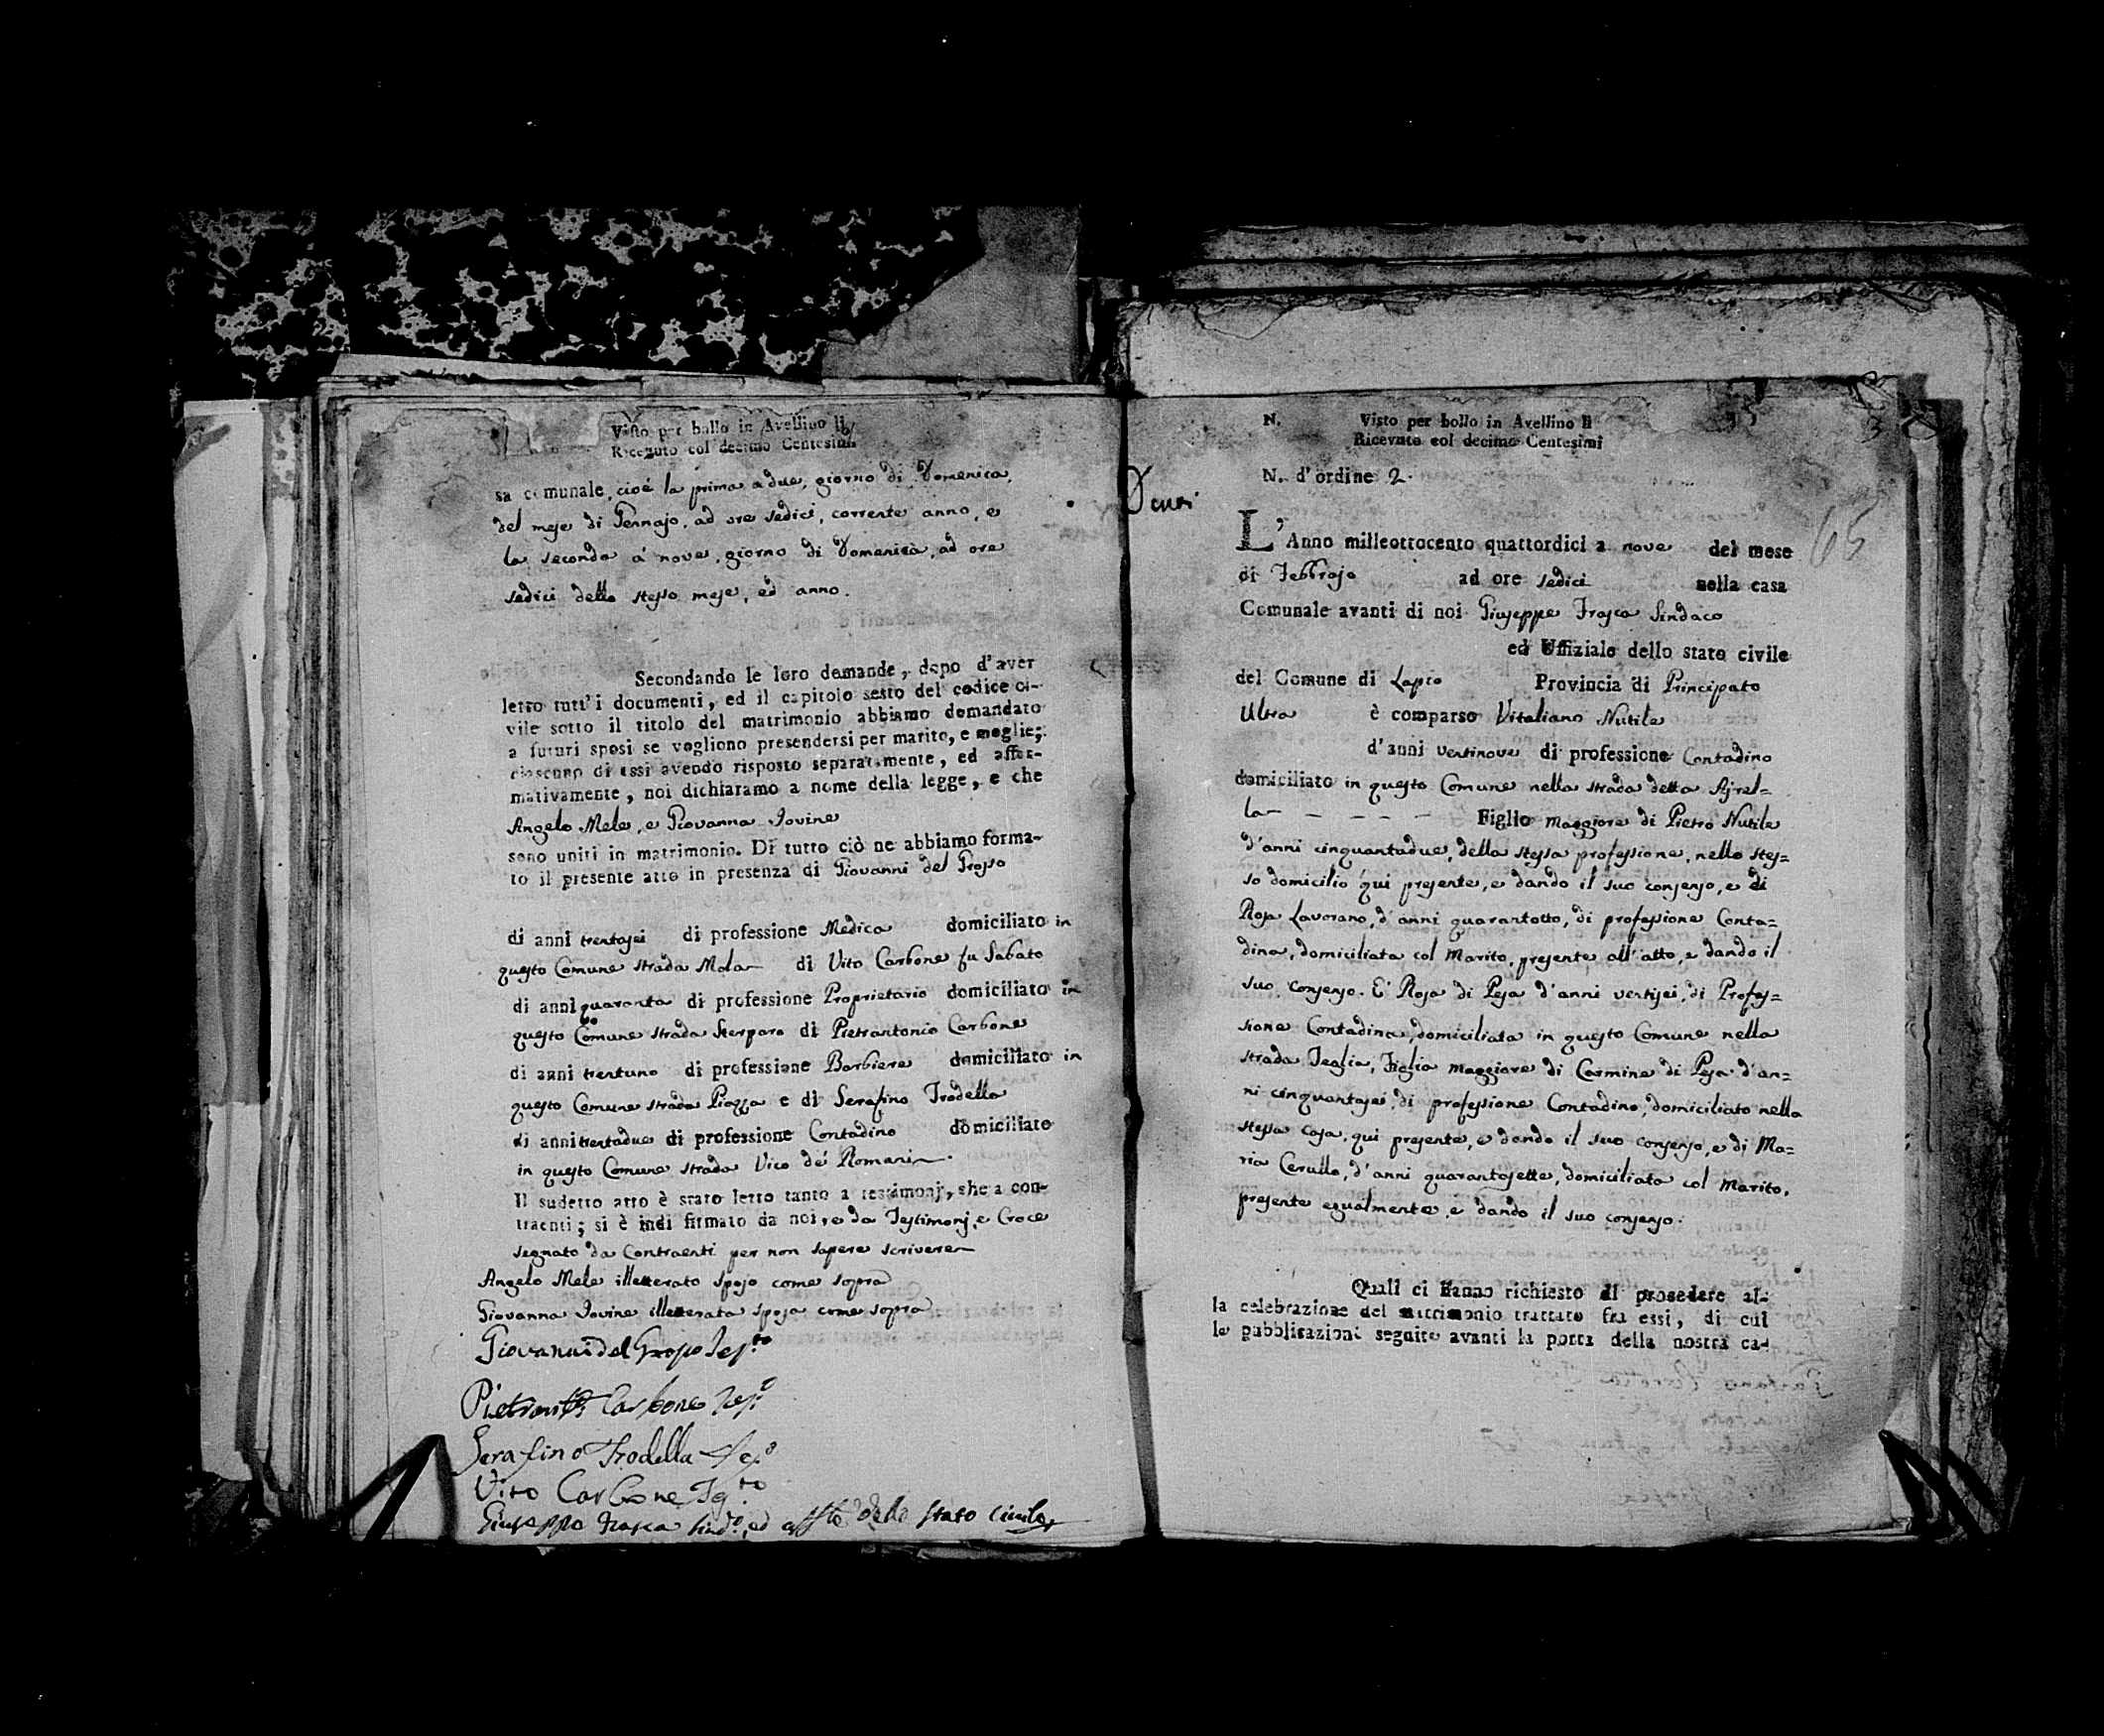 Visto per bollo in Avellino li
Ricevuto col decimo Centesimi
sa comunale, cioé la prima a due, giorno di Domenica,
del mese di Gennajo, ad ore sedici, corrente anno, e
la seconda a' nove, giorno di Domenica, ad ore
sedici dello stesso mese, ed anno.
Secondando le loro domande, dopo d'aver
letto tutt'i documenti, ed il capitolo sesto del codice ci-
vile sotto il titolo del matrimonio abbiamo domandato
a futuri sposi se vogliono presendersi per marito, e moglie;
ciascuno di essi avendo risposto separatamente, ed affer-
mativamente, noi dichiaramo a nome della legge, e che
Angelo Mele, e Giovanna Iovine
sono uniti in matrimonio. Di tutto ciò ne abbiamo forma-
to il presente atto in presenza di Giovanni del Grosso
di anni trentasei di professione Medico domiciliato in
questo Comune strada Mola di Vito Carbone fu Sabato
di anni quaranta di professione Proprietario domiciliato in
questo Comune strada di Pietrantonio Carbone
di anni trentuno di professione Barbiere domiciliato in
questo Comune strada Piazza e di Serafino Trodella
di anni trentadue di professione Contadino domiciliato
in questo Comune strada Vico de' Romani.
Il sudetto atto è stato letto tanto a testimonj, che a con-
traenti; si è indi firmato da noi, e da Testimonj, e Croce
segnato da Contraenti per non sapere scrivere
Angelo Mele illetterato sposo come sopra
Giovanna Iovine illetterata sposa come sopra
Giovanni del Grosso Tes.to
Carbone Tes.o
Serafino Trodella Tes.o
Vito Carbone Tes.to
Giuseppe Frasca Sind.o, ed dello stato civile
N. Visto per bollo in Avellino li
Ricevuto col decimo Centesimi
N. d'ordine 2.
65
L'Anno milleottocento quattordici a nove del mese
di Febbrajo ad ore sedici nella casa
Comunale avanti di noi Giuseppe Frasca Sindaco
ed Uffiziale dello stato civile
del Comune di Lapio Provincia di Principato
Ultra è comparso Vitaliano Nutile
d'anni ventinove di professione Contadino
domiciliato in questo Comune nella strada detta Ajrel=
la - - - - - Figlio maggiore di Pietro Nutile
d'anni cinquantadue, della stessa professione, nello stes=
so domicilio qui presente, e dando il suo consenso, e di
Rosa Lavorano, d'anni quarantotto, di professione Conta=
dina, domiciliata col Marito, presente all'atto, e dando il
suo consenso. E' Rosa di Pesa d'anni ventisei, di Profes=
sione Contadina, domiciliata in questo Comune nella
strada Teglia, Figlia maggiore di Carmine di Pesa d'an=
ni cinquantasei, di professione Contadino, domiciliato nella
stessa casa, qui presente, e dando il suo consenso, e di Ma=
ria Cerullo, d'anni quarantasette, domiciliata col Marito,
presente egualmente, e dando il suo consenso.
Quali ci hanno richiesto di procedere al-
la celebrazione del matrimonio trattato fra essi, di cui
le pubblicazioni seguite avanti la porta della nostra ca-